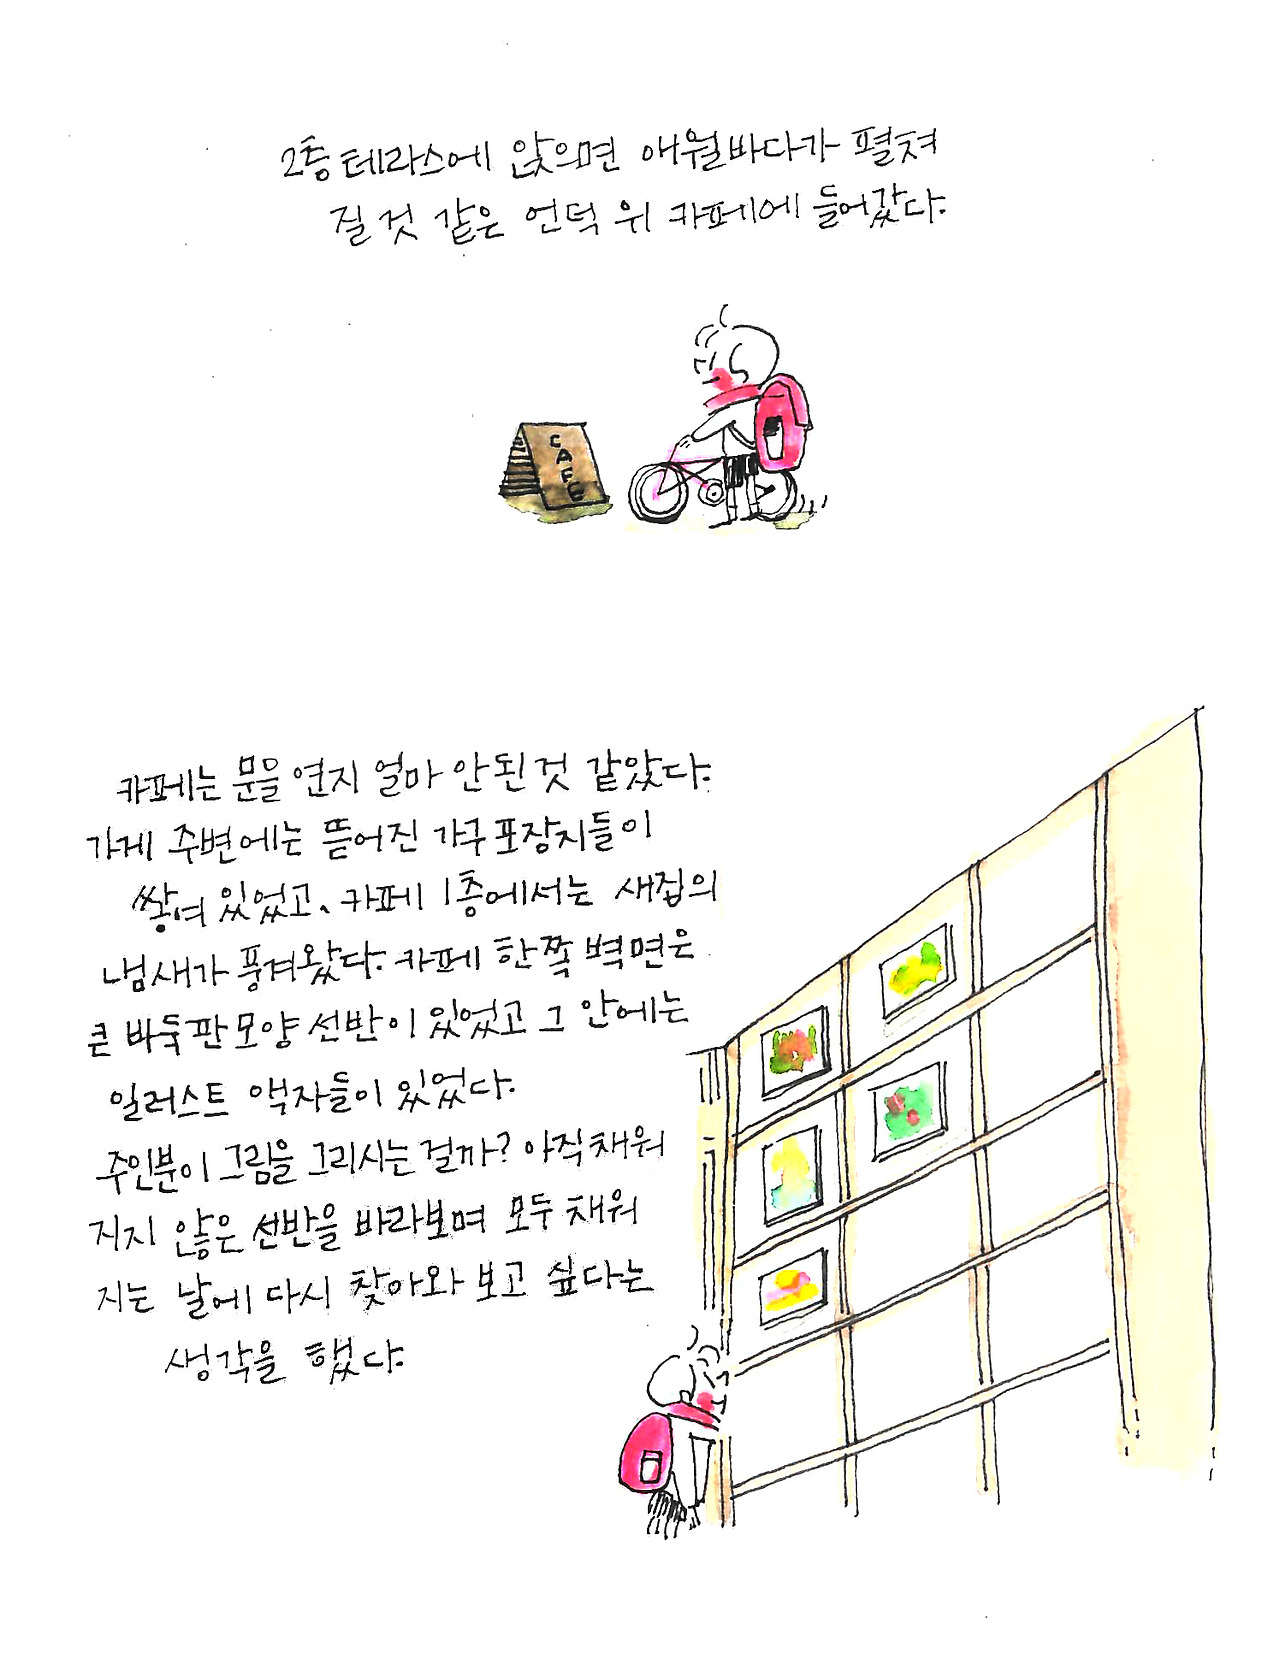 2층 테라스에 앉으면 애월바다가 펼쳐
질 것 같은 언덕 위 카페에 들어갔다.
CAFE
카페는 문을 연지 얼마 안된것 같았다.
가게 주변에는 뜯어진 가구포장지들이
쌓여 있었고, 카페 1층에서는 새집의
냄새가 풍겨왔다. 카페 한쪽 벽면은
큰 바둑판모양 선반이 있었고 그 안에는
일러스트 액자들이 있었다.
주인분이 그림을 그리시는걸까? 아직 채워
지지 않은 선반을 바라보며 모두 채워
지는 날에 다시 찾아와 보고 싶다는
생각을 했다.